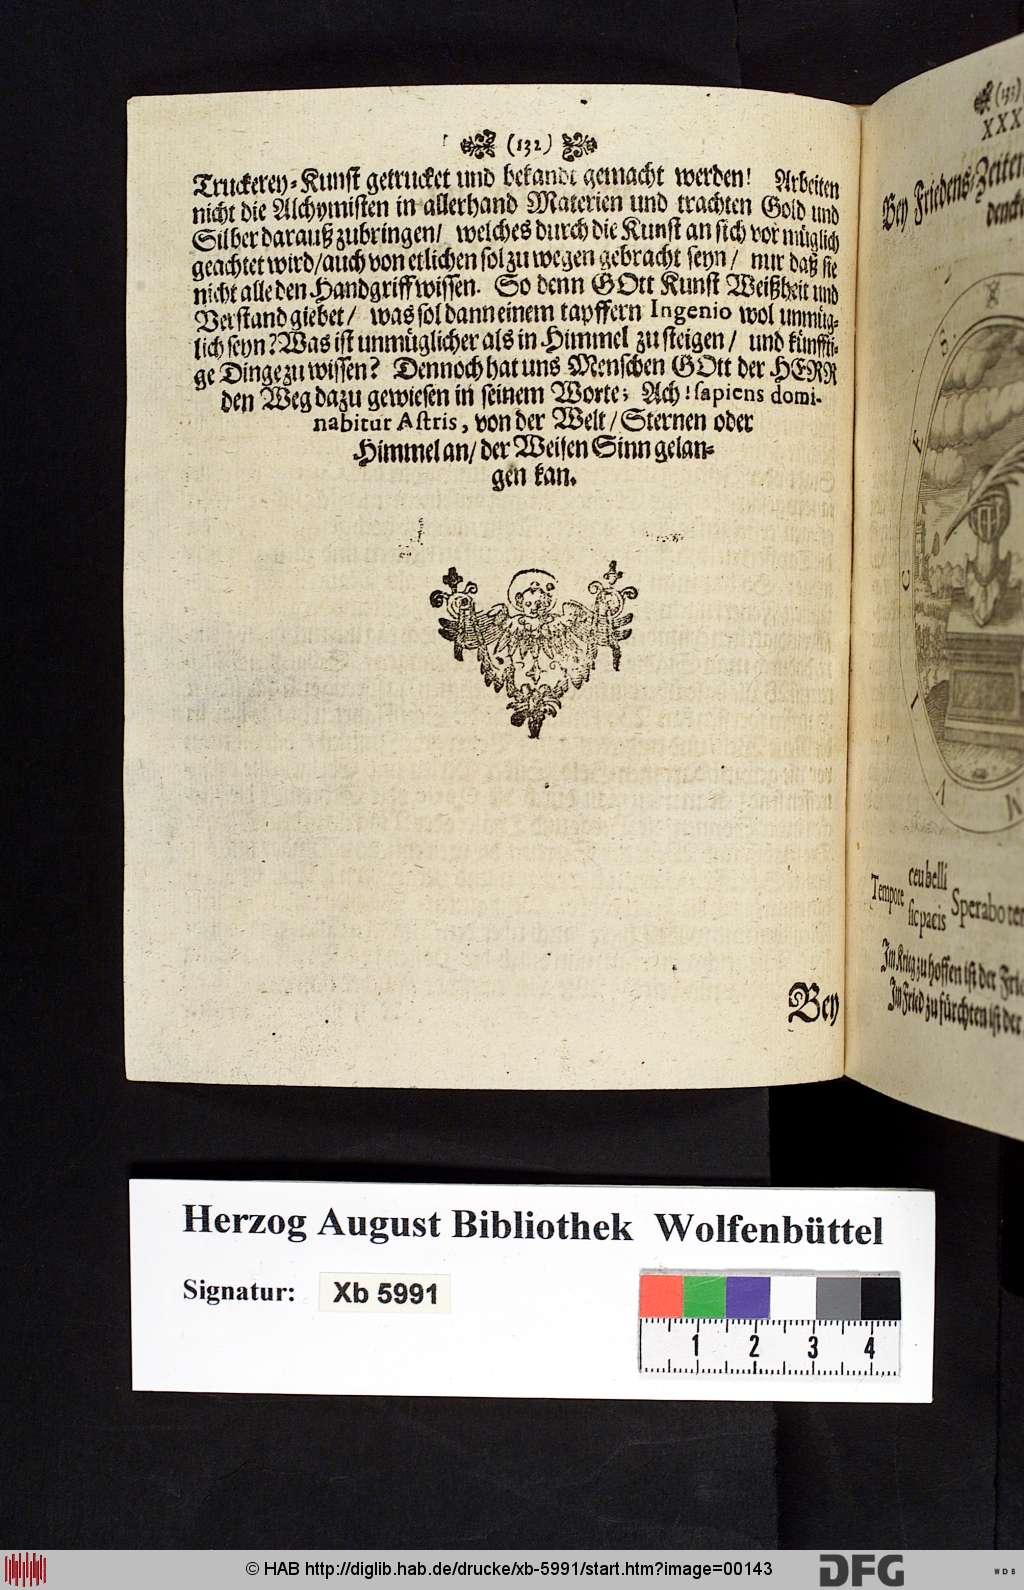 (132)
Truckerey-Kunst getrucket und bekandt gemacht werden! Arbeiten
nicht die Alchymisten in allerhand Materien und trachten Gold und
Silber darauß zubringen/ welches durch die Kunst an sich vor müglich
geachtet wird/ auch von etlichen sol zu wegen gebracht seyn/ nur daß sie
nicht alle den Handgriff wissen. So denn GOtt Kunst Weißheit und
Verstand giebet/ was sol dann einem tapffern Ingenio wol unmüg-
lich seyn? Was ist unmüglicher als in Himmel zu steigen/ und künffti-
ge Dinge zu wissen? Dennoch hat uns Menschen GOtt der HERR
den Weg dazu gewiesen in seinem Worte; Ach! sapiens domi-
nabitur Astris, von der Welt/ Sternen oder
Himmel an/ der Weisen Sinn gelan-
gen kan.
Bey
(133)
XXX
Bey Friedens-Zeiten
dencke
S.
E
C
I
V
M
Tempore
ceu belli
sic pacis
Sperabo
Im Krieg zu hoffen ist der
Im Fried zu fürchten ist der
Herzog August Bibliothek Wolfenbüttel
Signatur: Xb 5991
1 2 3 4
© HAB http://diglib.hab.de/drucke/xb-5991/start.htm?image=00143
DFG
WDB